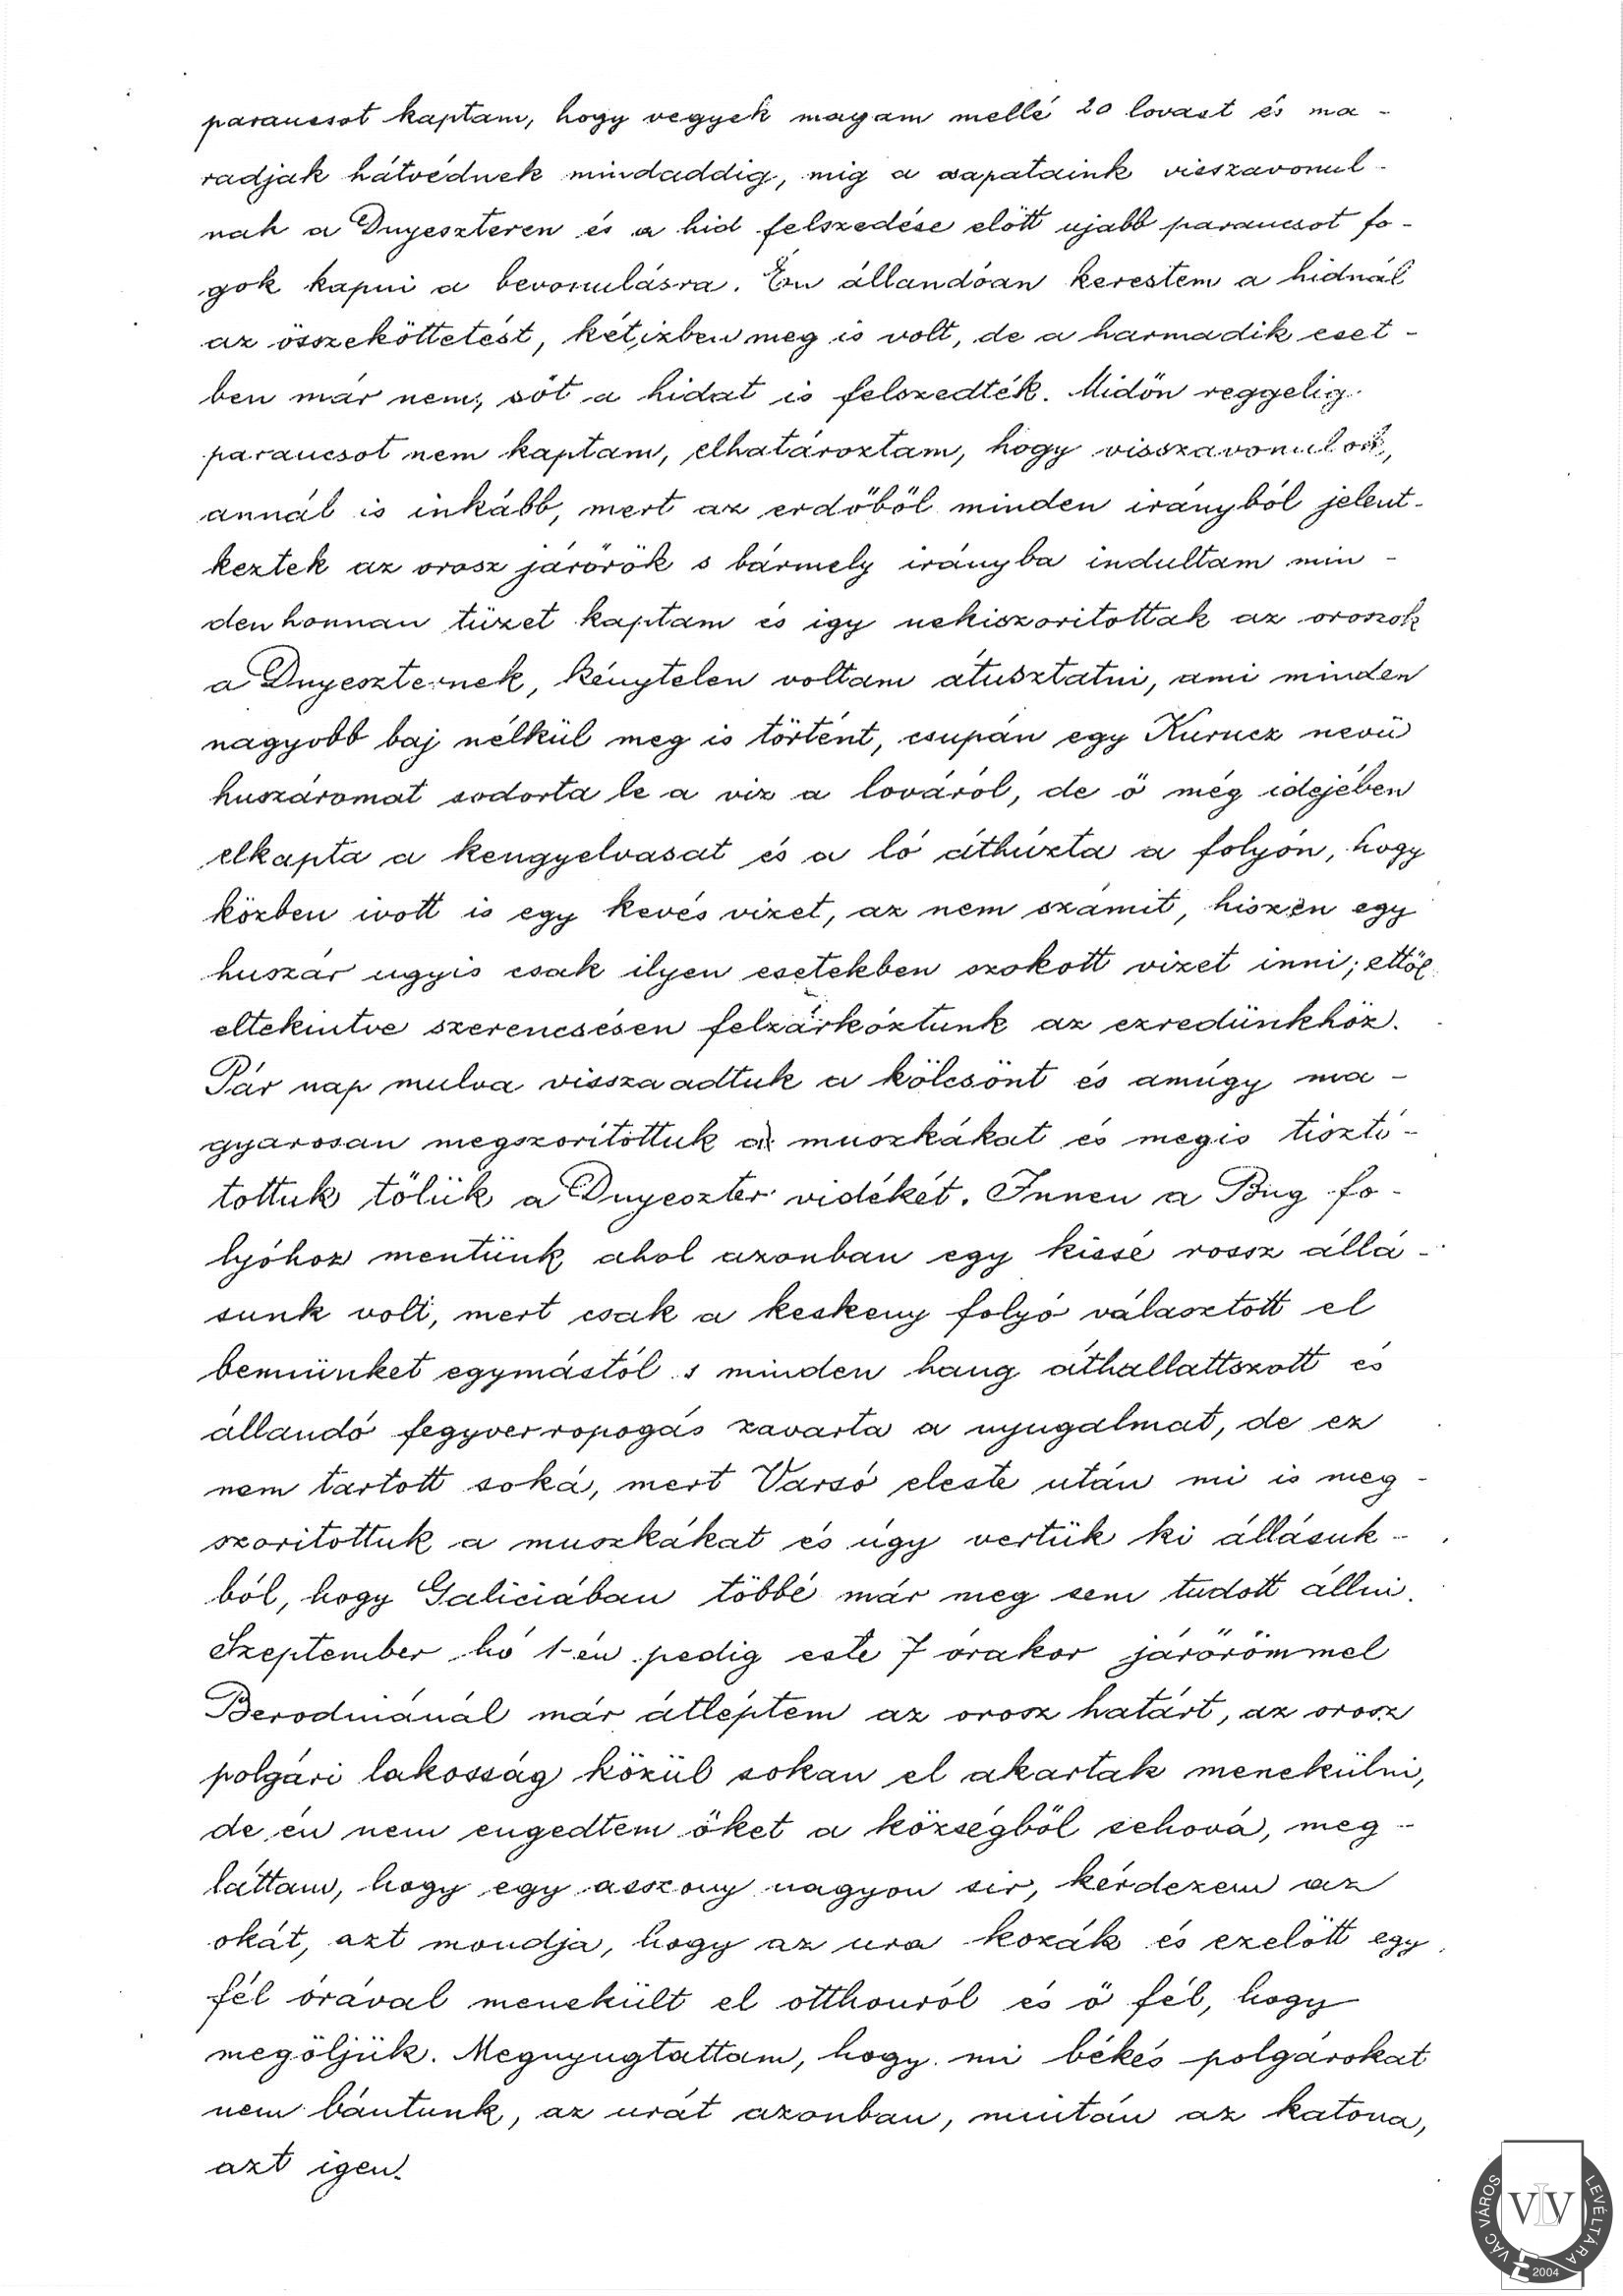 parancsot kaptam, hogy vegyek magam mellé 20 lovast és ma-
radjak hátvédnek mindaddig, mig a csapataink visszavonul-
nak a Dnyeszteren és a hid felszedése előtt ujabb parancsot fo-
gok kapni a bevonulásra. Én állandóan kerestem a hidnál
az összeköttetést, kétizben meg is volt, de a harmadik eset-
ben már nem, sőt a hidat is felszedték. Midőn reggelig
parancsot nem kaptam, elhatároztam, hogy visszavonulok,
annál is inkább, mert az erdőből minden irányból jelent-
keztek az orosz járőrök s bármely irányba indultam min-
denhonnan tüzet kaptam és igy nekiszoritottak az oroszok
a Dnyeszternek, kénytelen voltam átusztatni, ami minden
nagyobb baj nélkül meg is történt, csupán egy Kurucz nevü
huszáromat sodorta le a viz a lováról, de ő még idejében
elkapta a kengyelvasat és a ló áthúzta a folyón, hogy
közben ivott is egy kevés vizet, az nem számit, hiszen egy
huszár ugyis csak ilyen esetekben szokott vizet inni; ettől
eltekintve szerencsésen felzárkóztunk az ezredünkhöz.
Pár nap mulva visszaadtuk a kölcsönt és amúgy ma-
gyarosan megszoritottuk a muszkákat és megis tiszti-
tottuk tőlük a Dnyeszter vidékét. Innen a Bug fo-
lyóhoz mentünk ahol azonban egy kissé rossz állá-
sunk volt, mert csak a keskeny folyó választott el
bennünket egymástól s minden hang áthallattszott és
állandó fegyverropogás zavarta a nyugalmat, de ez
nem tartott soká, mert Varsó eleste után mi is meg-
szoritottuk a muszkákat és úgy vertük ki állásuk-
ból, hogy Galiciában többé már meg sem tudott állni.
Szeptember hó 1-én pedig este 7 órakor járőrömmel
Berodmánál már átléptem az orosz határt, az orosz
polgári lakosság közül sokan el akartak menekülni,
de én nem engedtem őket a községből sehová, meg-
láttam, hogy egy asszony nagyon sir, kérdezem az
okát, azt mondja, hogy az ura kozák és ezelőtt egy
fél órával menekült el otthonról és ő fél, hogy
megöljük. Megnyugtattam, hogy mi békés polgárokat
nem bántunk, az urát azonban, miután az katona,
azt igen.
VÁC VÁROS LEVÉLTÁRA
VLV
2004